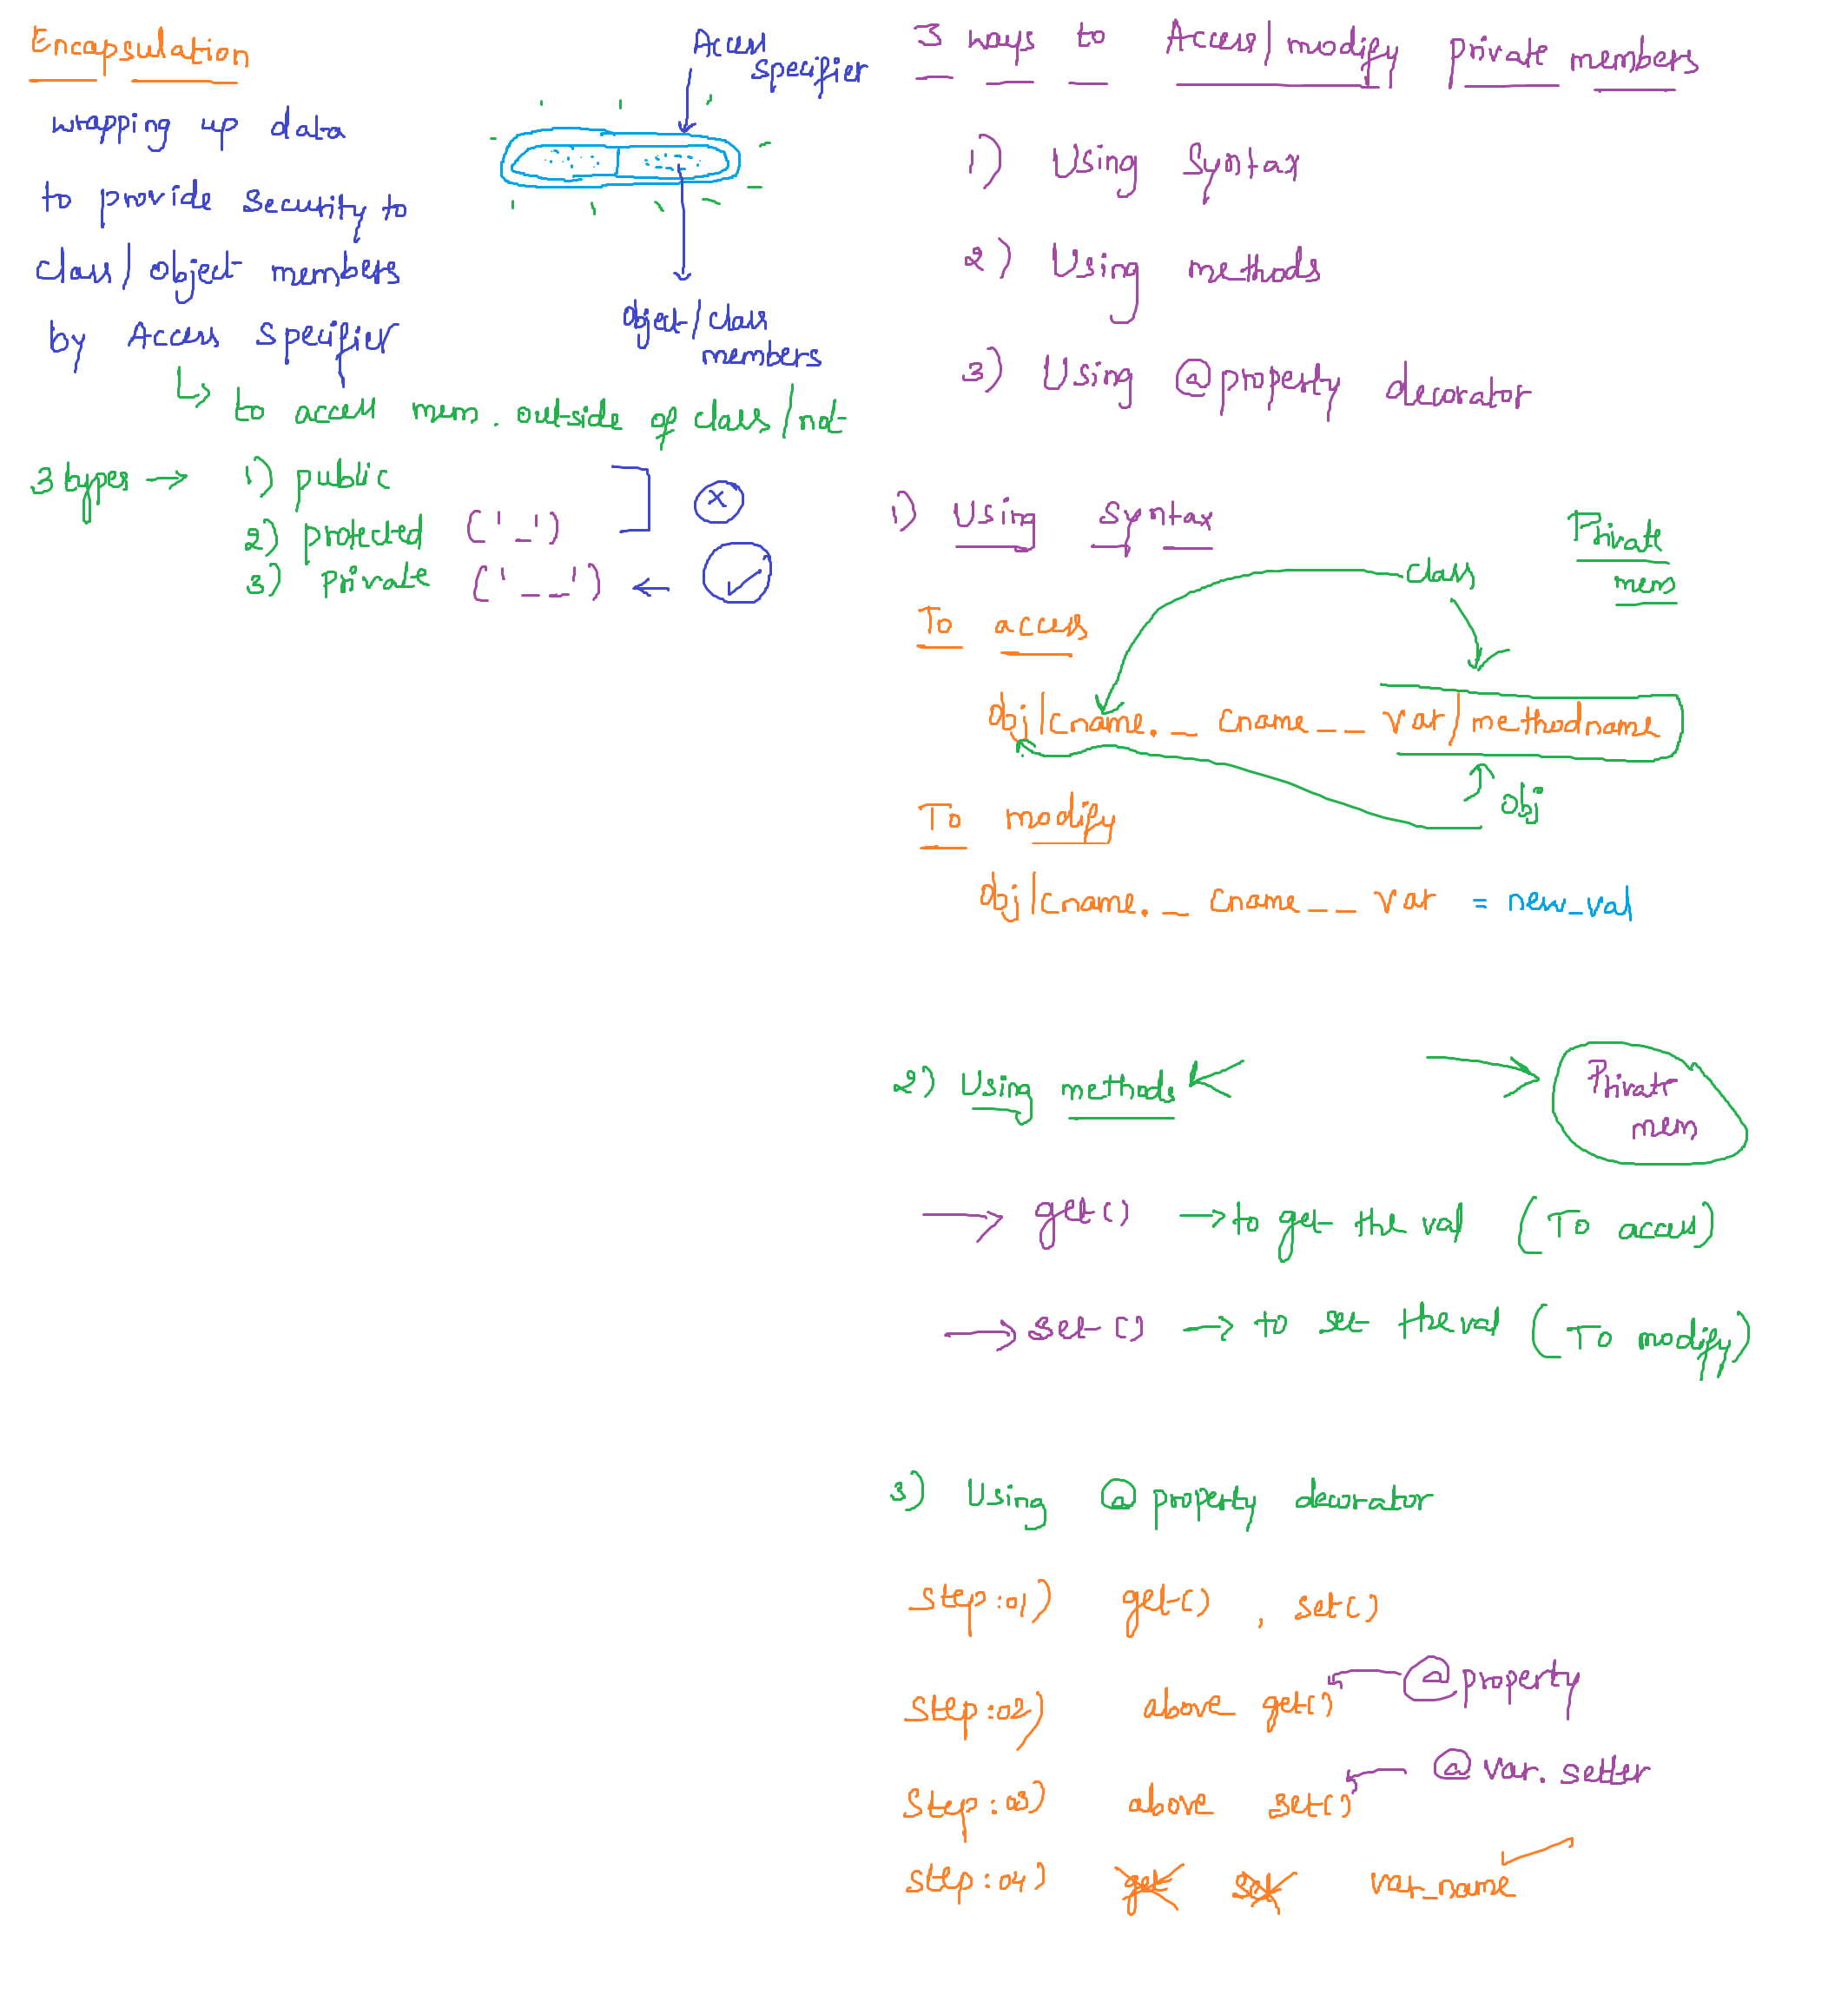 Encapsulation
wrapping up data
to provide security to
class/object members
by Access Specifier
Access
specifier
object/class
members
to access mem. outside of class/not
3 types → 1) public
2) protected ('_')
3) private ('__') ←
x
3 ways to Access/modify private members
1) Using Syntax
2) Using methods
3) Using @property decorator
1) Using Syntax
Private
mem
class
To access
obj/cname._ cname__ var/methodname
obj
To modify
obj/cname._ cname__ var = new_val
2) Using methods
Private
mem
→ get() → to get the val (To access)
→ set() → to set the val (To modify)
3) Using @property decorator
Step:01) get() , set()
Step:02) above get() ← @property
Step:03) above set() ← @var.setter
Step:04) get set var_name